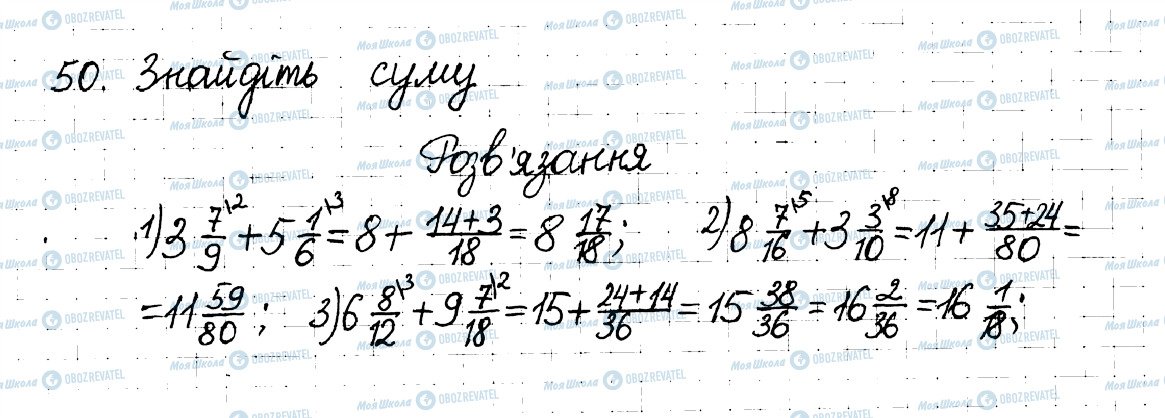 50. Знайдіть суму
Розв'язання
1) 3 7/9 \2 + 5 1/6 \3 = 8 + (14+3)/18 = 8 17/18; 2) 8 7/16 \5 + 3 3/10 \8 = 11 + (35+24)/80 =
= 11 59/80; 3) 6 8/12 \3 + 9 7/18 \2 = 15 + (24+14)/36 = 15 38/36 = 16 2/36 = 16 1/18;
МояШкола OBOZREVATEL